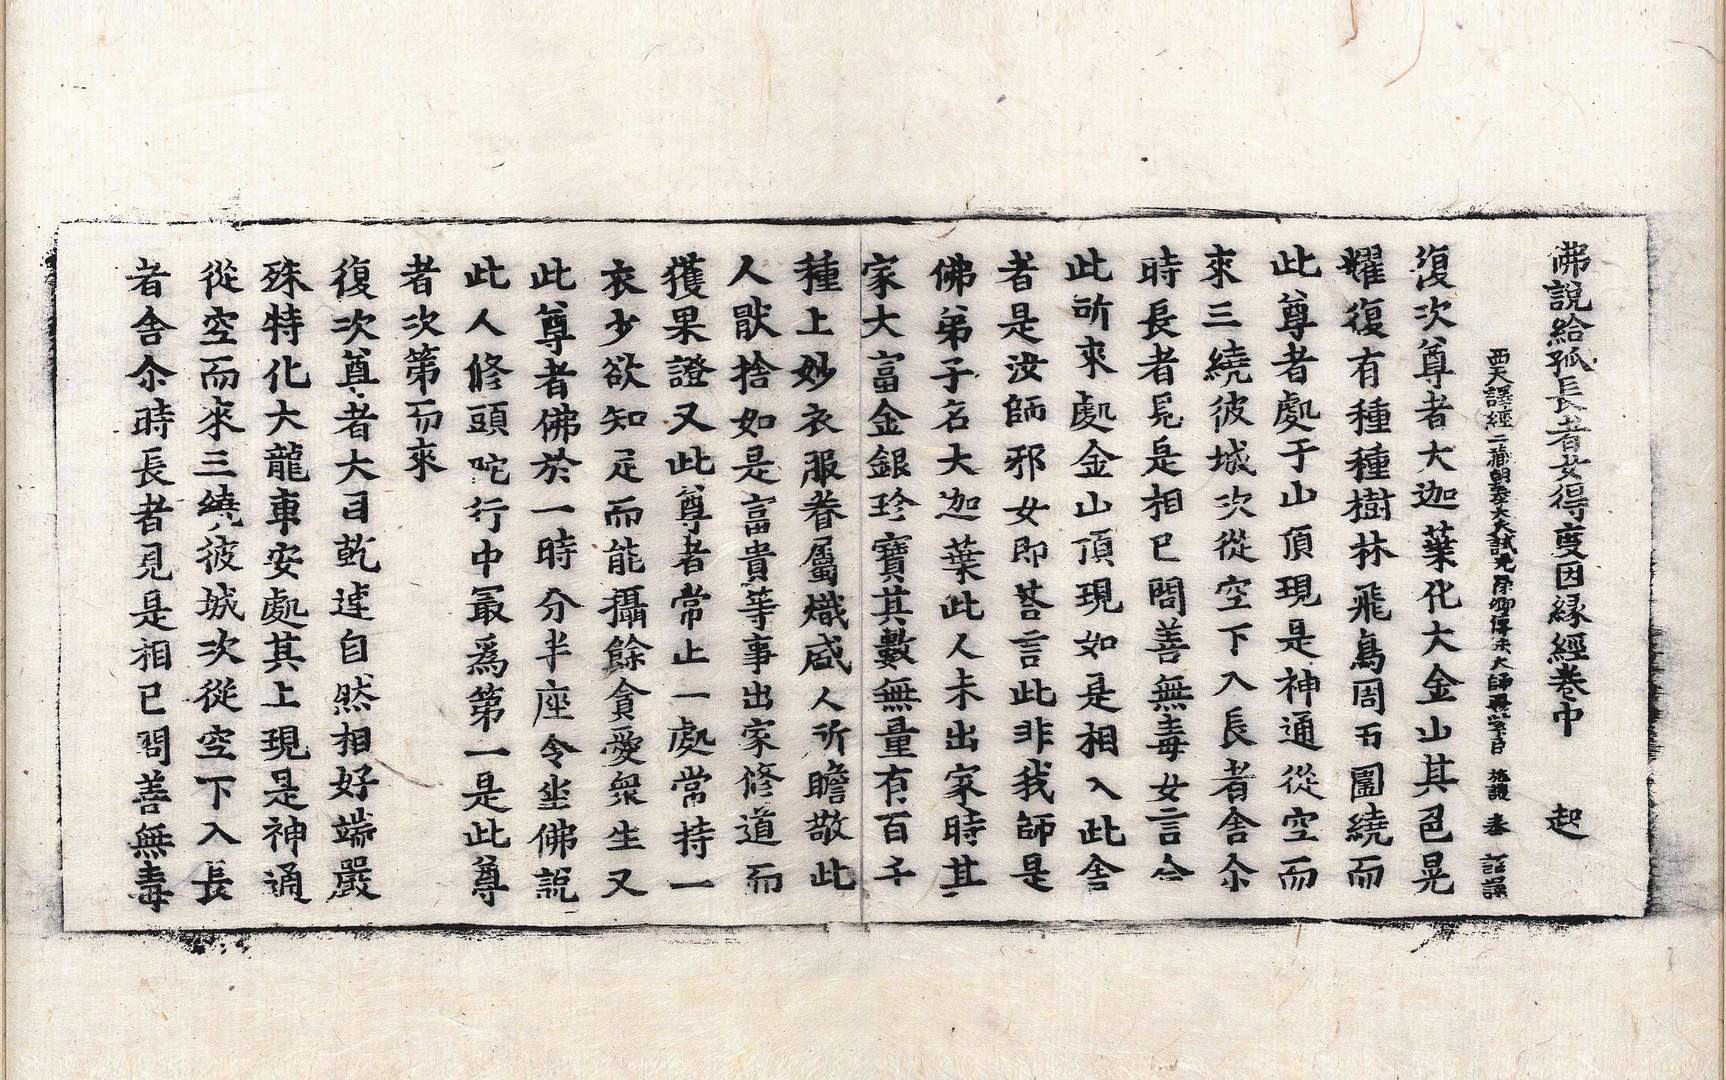 佛說給孤長者女得度因縁經卷中 起
西天譯經三藏朝奉大夫試光祿卿傳法大師賜紫臣 施護 奉 詔譯
復次尊者大迦葉化大金山其色晃
耀復有種種樹林飛鳥周帀圍繞而
此尊者處于山頂現是神通從空而
來三繞彼城次從空下入長者舍尒
時長者見是相已問善無毒女言今
此所來處金山頂現如是相入此舍
者是汝師邪女即荅言此非我師是
佛弟子名大迦葉此人未出家時其
家大富金銀珍寶其數無量有百千
種上妙衣服眷屬熾盛人所瞻敬此
人猒捨如是富貴等事出家修道而
獲果證又此尊者常止一處常持一
衣少欲知足而能攝餘貪愛衆生又
此尊者佛於一時分半座令坐佛說
此人修頭陀行中冣爲第一是此尊
者次第而來
復次尊者大目乾連自然相好端嚴
殊特化大龍車安處其上現是神通
從空而來三繞彼城次從空下入長
者舍尒時長者見是相已問善無毒